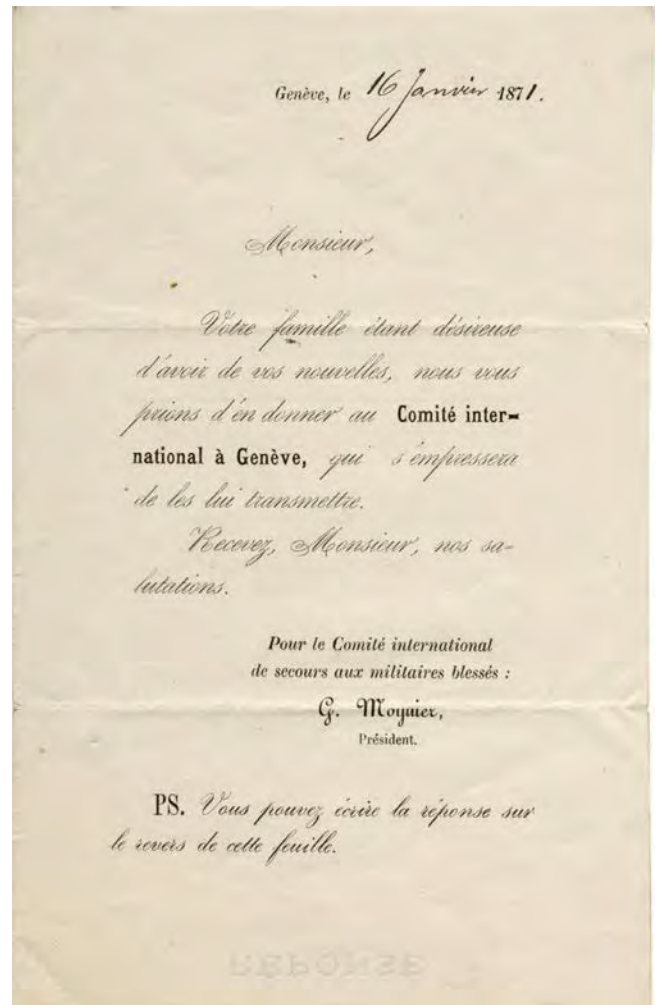 Genève, le 16 Janvier 1871.
Monsieur,
Votre famille étant désireuse
d'avoir de vos nouvelles, nous vous
prions d'en donner au Comité inter-
national à Genève, qui s'empressera
de les lui transmettre.
Recevez, Monsieur, nos sa-
lutations.
Pour le Comité international
de secours aux militaires blessés :
G. Moynier,
Président.
PS. Vous pouvez écrire la réponse sur
le revers de cette feuille.
RÉPONSE